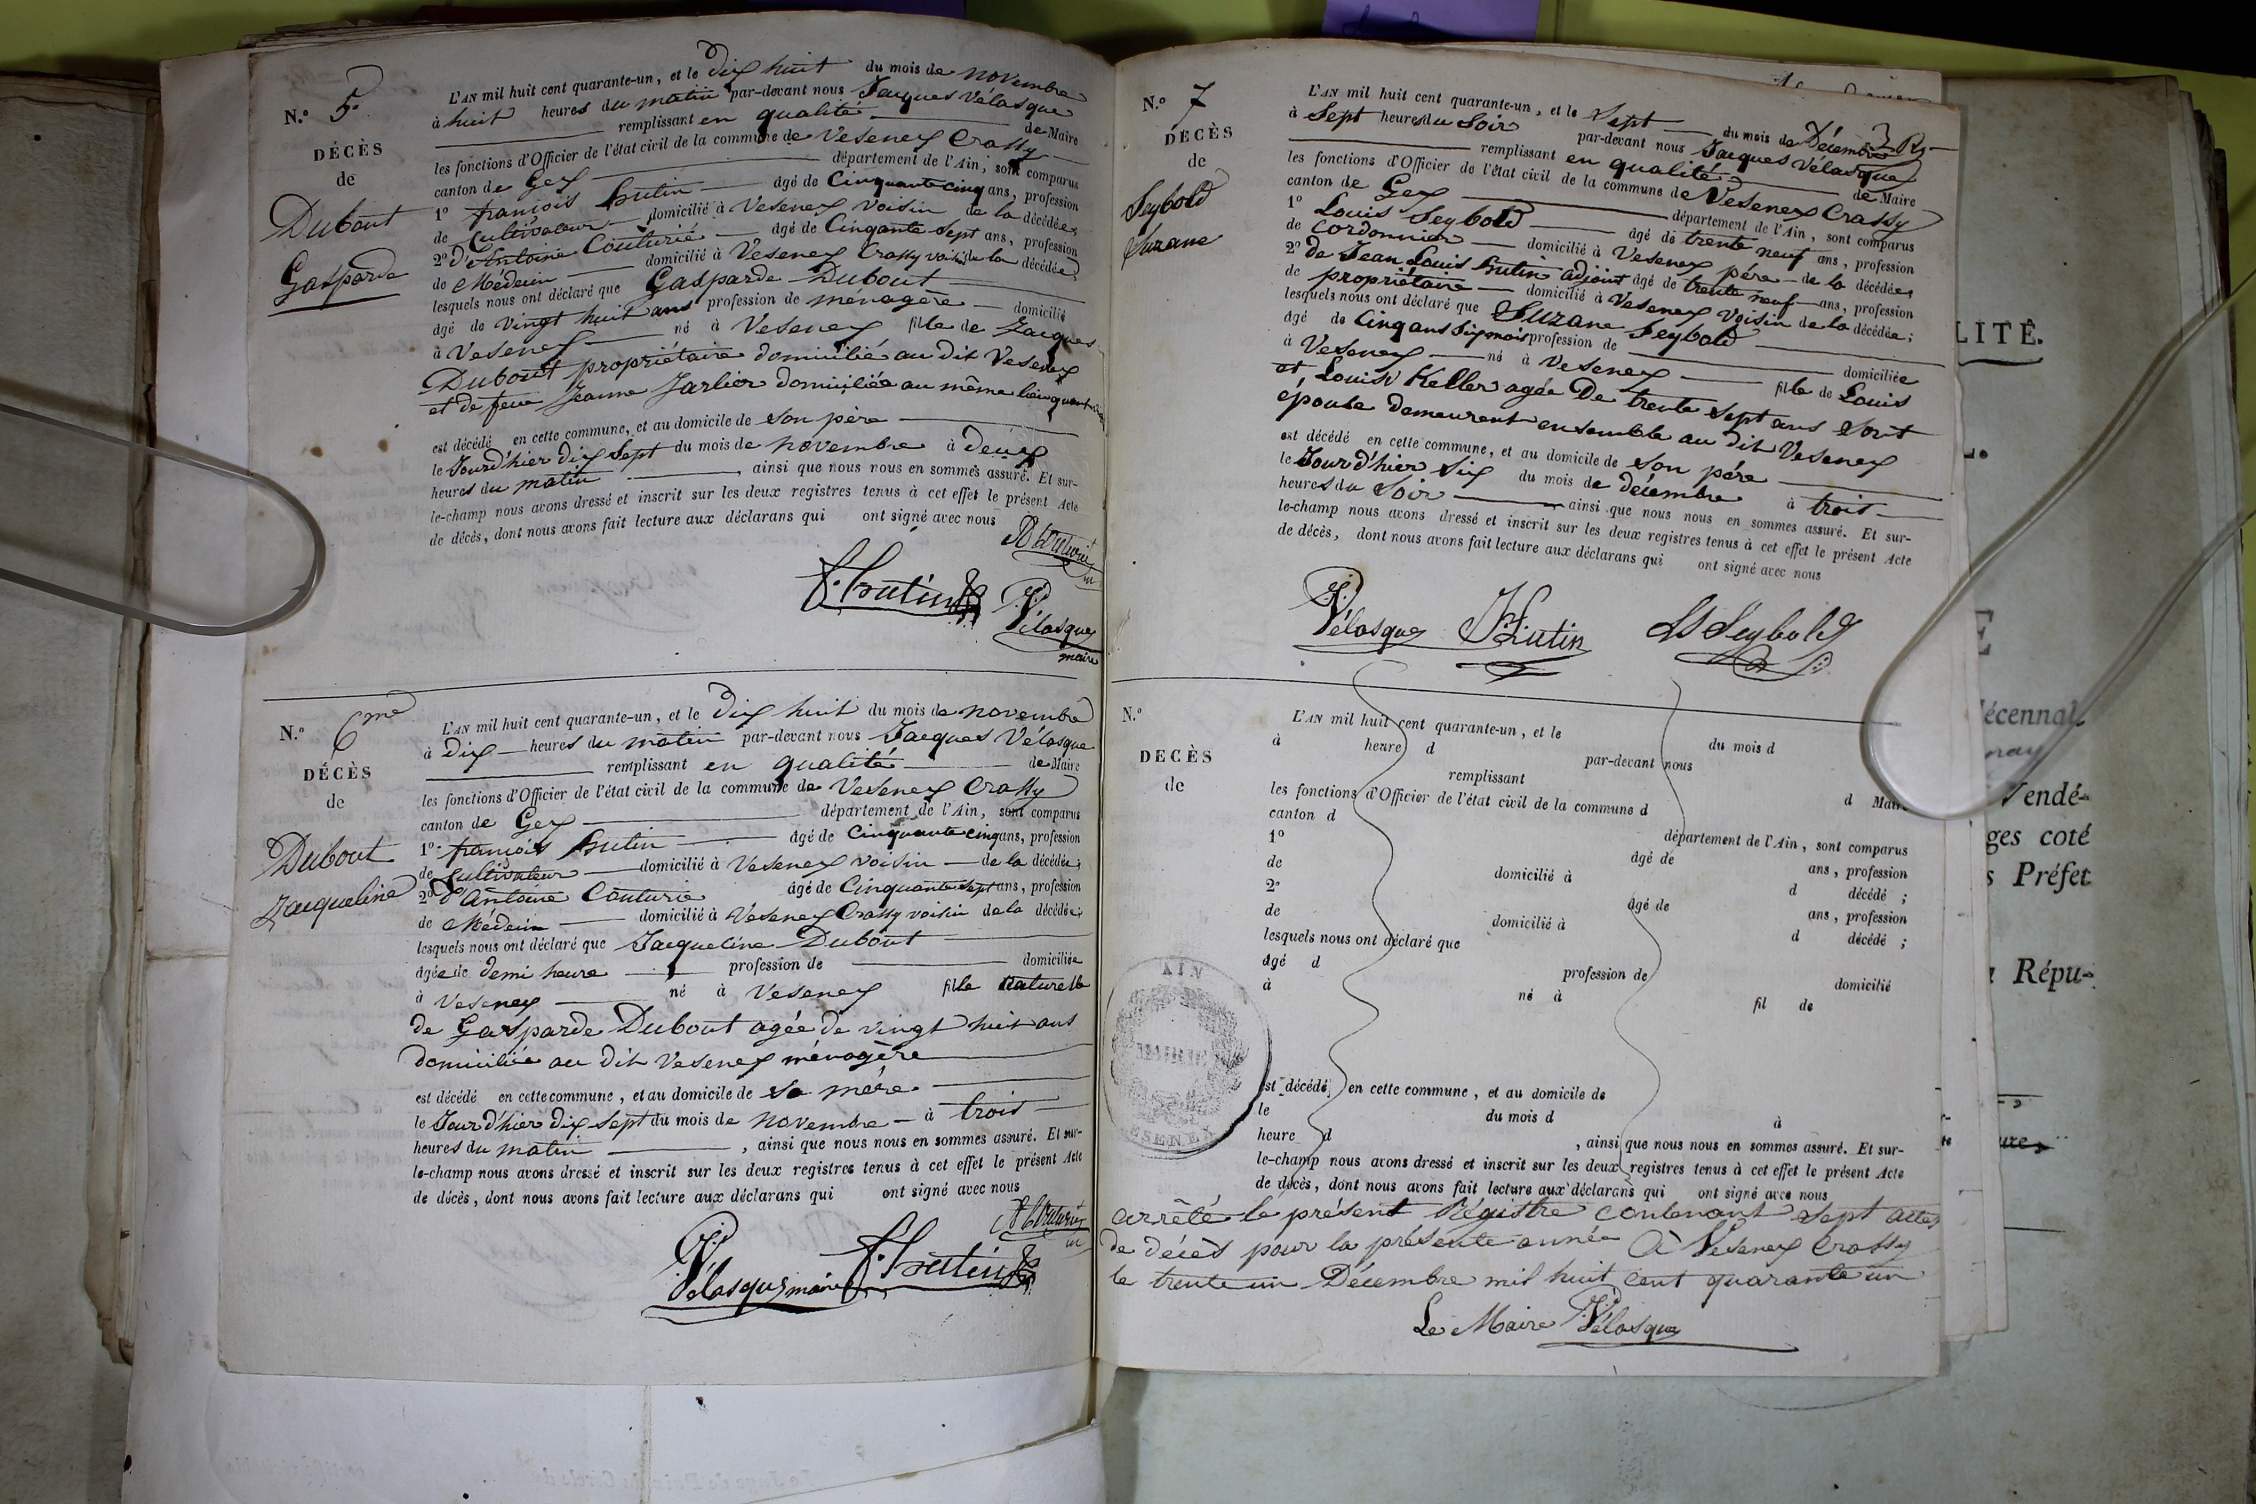 N.º 5.
DÉCÈS
de
Dubout
Gasparde
L'AN mil huit cent quarante-un, et le dix huit du mois de novembre
à huit heures du matin par-devant nous Jacques Vélasque
remplissant en qualité de Maire
les fonctions d'Officier de l'état civil de la commune de Vesenex Crassy
canton de Gex département de l'Ain, sont comparus
1º françois hutin âgé de Cinquante cinq ans, profession
de Cultivateur domicilié à Vesenex voisin de la décédée;
2º d'Antoine Couturié âgé de Cinqante sept ans, profession
de Médecin domicilié à Vesenex Crassy voisin de la décédée;
lesquels nous ont déclaré que Gasparde Dubout
âgé de vingt huit ans profession de ménagère domicilié
à Vesenex né à Vesenex fille de Jacques
Dubout propriétaire domicilié au dit Vesenex
et de feue Jeanne Jarlier domiciliée au même lieu quant
est décédé en cette commune, et au domicile de son père
le Jourd'hier dix sept du mois de novembre à deux
heures du matin, ainsi que nous nous en sommes assuré. Et sur-
le-champ nous avons dressé et inscrit sur les deux registres tenus à cet effet le présent Acte
de décès, dont nous avons fait lecture aux déclarans qui ont signé avec nous
f. hutin
Vélasque
maire
N.º 6me
DÉCÈS
de
Dubout
Jacqueline
L'AN mil huit cent quarante-un, et le dix huit du mois de novembre
à Dix heures du matin par-devant nous Jacques Vélasque
remplissant en qualité de Maire
les fonctions d'Officier de l'état civil de la commune de Vesenex Crassy
canton de Gex département de l'Ain, sont comparus
1º françois hutin âgé de Cinquante cinq ans, profession
de Cultivateur domicilié à Vesenex voisin de la décédée;
2º d'Antoine Couturié âgé de Cinquante sept ans, profession
de Médecin domicilié à Vesenex Crassy voisin de la décédée;
lesquels nous ont déclaré que Jacqueline Dubout
âgée de demi heure profession de domiciliée
à Vesenex né à Vesenex fille naturelle
de Gasparde Dubout agée de vingt huit ans
domiciliée au dit Vesenex ménagère
est décédé en cette commune, et au domicile de sa mère
le Jourd'hier dix sept du mois de novembre à trois
heures du matin, ainsi que nous nous en sommes assuré. Et sur-
le-champ nous avons dressé et inscrit sur les deux registres tenus à cet effet le présent Acte
de décès, dont nous avons fait lecture aux déclarans qui ont signé avec nous
Vélasque maire f. hutin
N.º 7
DÉCÈS
de
Seybold
Suzane
L'AN mil huit cent quarante-un, et le Sept du mois de Décembre
à Sept heures du Soir par-devant nous Jacques Vélasque
remplissant en qualité de Maire
les fonctions d'Officier de l'état civil de la commune de Vesenex Crassy
canton de Gex département de l'Ain, sont comparus
1º Louis Seybold âgé de trente neuf ans, profession
de cordonnier domicilié à Vesenex père de la décédée;
2º de Jean Louis hutin adjoint âgé de trente neuf ans, profession
de propriétaire domicilié à Vesenex voisin de la décédée;
lesquels nous ont déclaré que Suzane Seybold
âgé de Cinq ans Six mois profession de domiciliée
à Vesenex né à Vesenex fille de Louis
et Louise Keller agée De trente sept ans Sont
épouse demeurent ensemble au dit Vesenex
est décédé en cette commune, et au domicile de son père
le Jourd'hier Six du mois de décembre à trois
heures du Soir ainsi que nous nous en sommes assuré. Et sur-
le-champ nous avons dressé et inscrit sur les deux registres tenus à cet effet le présent Acte
de décès, dont nous avons fait lecture aux déclarans qui ont signé avec nous
Vélasque Hutin Ls Seybold
N.º
DÉCÈS
de
L'AN mil huit cent quarante-un, et le du mois d
à heure d par-devant nous
remplissant d Maire
les fonctions d'Officier de l'état civil de la commune d
canton d département de l'Ain, sont comparus
1º âgé de ans, profession
de domicilié à d décédé;
2º âgé de ans, profession
de domicilié à d décédé;
lesquels nous ont déclaré que
âgé d profession de domicilié
à né à fil de
est décédé en cette commune, et au domicile de
le du mois d à
heure d, ainsi que nous nous en sommes assuré. Et sur-
le-champ nous avons dressé et inscrit sur les deux registres tenus à cet effet le présent Acte
de décès, dont nous avons fait lecture aux déclarans qui ont signé avec nous
AIN
MAIRIE
VESENEX
arrêté le présent Régistre contenant sept actes
de décès pour la présente année à Vesenex Crassy
le trente un Décembre mil huit cent quarante un
Le Maire Vélasque
LITÉ.
écennal
Vendé-
ges coté
s Préfet
Répu-